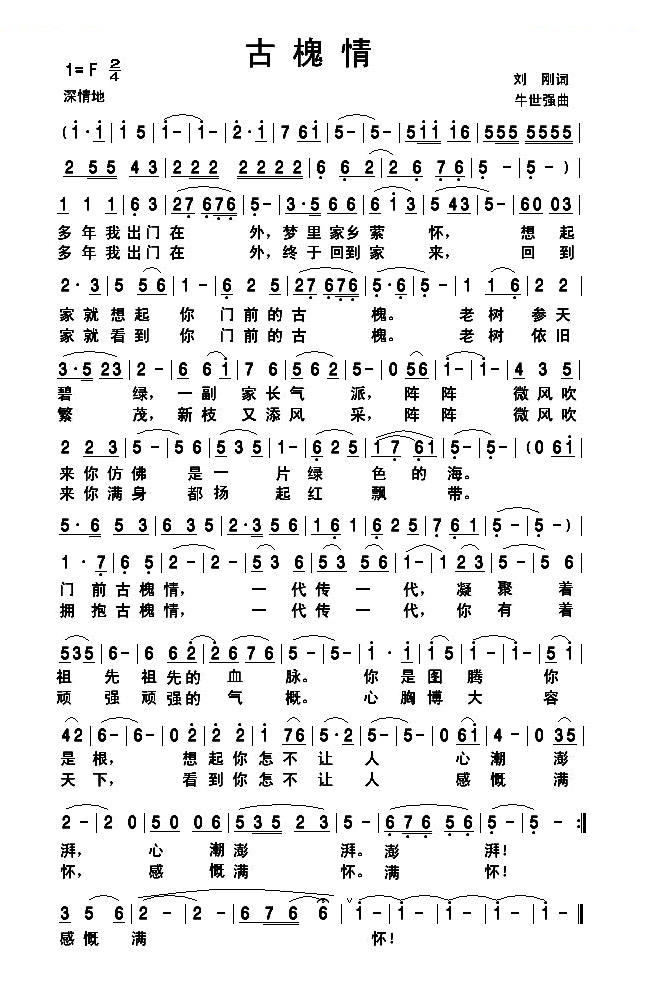 古槐情
1=F 2/4
刘 刚词
深情地
牛世强曲
(i·i|i 5|i-|i-|2·i|7 6i|5-|5-|5ii i6|555 5555|
2 55 43|222 2222|6 62|2676|5-|5-)|
1 1 1|63|27 676|5-|3·5 66|6i3|5 43|5-|60 03|
多年我出门在 外，梦里家乡萦 怀， 想起
多年我出门在 外，终于回到家 来， 回到
2·3|5 56|1-|6 25|27 676|5·6|5-|1 16|2 2|
家就想起 你 门前的古 槐。 老树 参天
家就看到 你 门前的古 槐。 老树 依旧
3·5 23|2-|6 6i|76|5 652|5-|5-|0 56|i-|i-|4 3 5|
碧 绿，一副 家长气 派，阵阵 微风吹
繁 茂，新枝 又添风 采，阵阵 微风吹
2 2 3|5-|5 6|5 35|1-|6 25|17 61|5-|5-|(0 6i|
来你仿佛 是一 片绿 色的海。
来你满身 都扬 起红 飘 带。
5·6 53|6 35|2·3 56|1 61|6 25|7 61|5-|5-)|
1·7|6 5|2-|2-|5 3|56|53 56|1-|1 23|5-|5 6|
门 前古槐情， 一代传一 代，凝聚着
拥 抱古槐情， 一代传一 代，你有着
535|6-|6 2|2676|5-|5-|i·i|i5|i-|i-|5 i|
祖 先 祖先的血 脉。 你是图腾 你
顽 强 顽强的气 概。 心胸博大 容
42|6-|6-|0 2|2·2|i 76|5·2|5-|5-|0 6i|4-|0 35|
是根， 想起你怎不让 人 心潮 澎
天下， 看到你怎不让 人 感慨 满
2-|2 0|50 06|535 23|5-|676 56|5-|5-:||
湃， 心 潮澎 湃。澎 湃！
怀， 感 慨满 怀。满 怀！
3 5 6|2-|2-|6 76 6|i-|i-|i-|i 0||
感慨 满 怀！